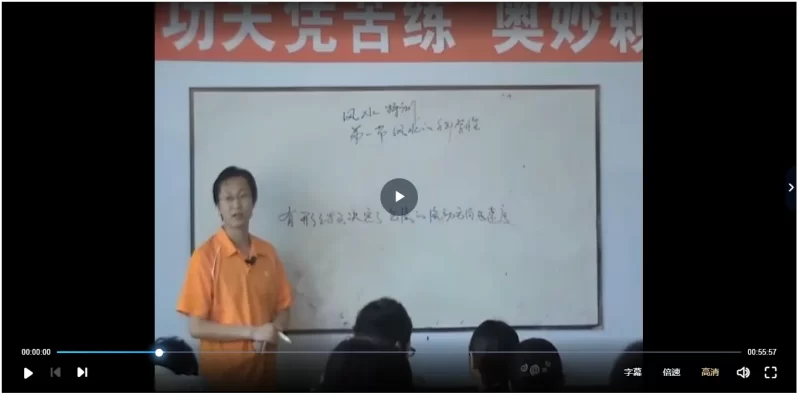 功夫凭苦练 奥妙赖
风水培训
第一节 风水的科学性
有形的
决定了
00:00:00
00:55:57
字幕
倍速
高清